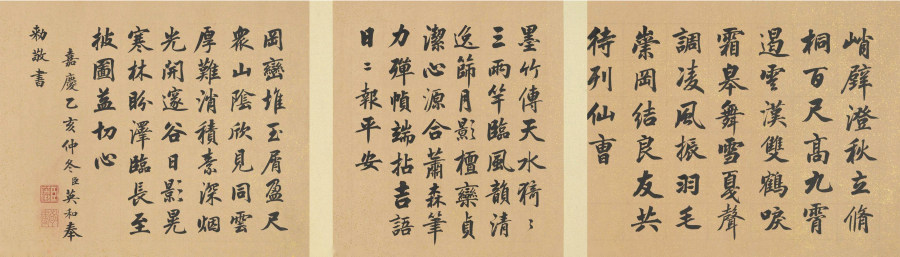 峭壁澄秋立脩
桐百尺高九霄
遏雲漢雙鶴唳
霜皋舞雪戛聲
調凌風振羽毛
崇岡結良友共
待列仙曹
墨竹傳天水猗〻
三兩竿臨風韻清
逸篩月影檀欒貞
潔心源合蕭森筆
力殫幀端拈吉語
日〻報平安
岡巒堆玉屑盈尺
衆山陰欣見同雲
厚難消積素深烟
光開邃谷日影晃
寒林盼澤臨長至
披圖益切心
嘉慶乙亥仲冬臣英和奉
勅敬書